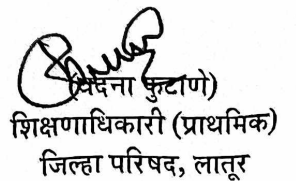 (वंदना फुटाणे)
शिक्षणाधिकारी (प्राथमिक)
जिल्हा परिषद, लातूर